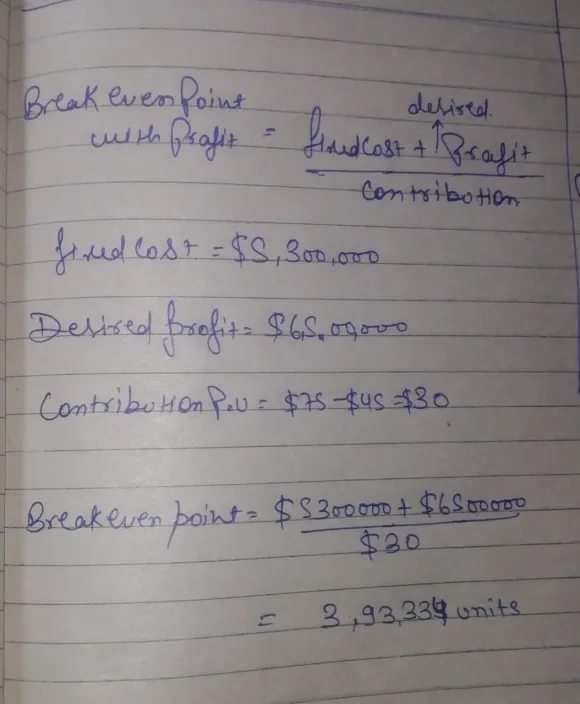 Break even Point
desired
with Profit = fixed cost + Profit
Contribution
fixed cost = $5,300,000
Desired profit = $65,00,000
Contribution P.U = $75 - $45 = $30
Break even point = $5300000 + $6500000
$30
= 3,93,334 units